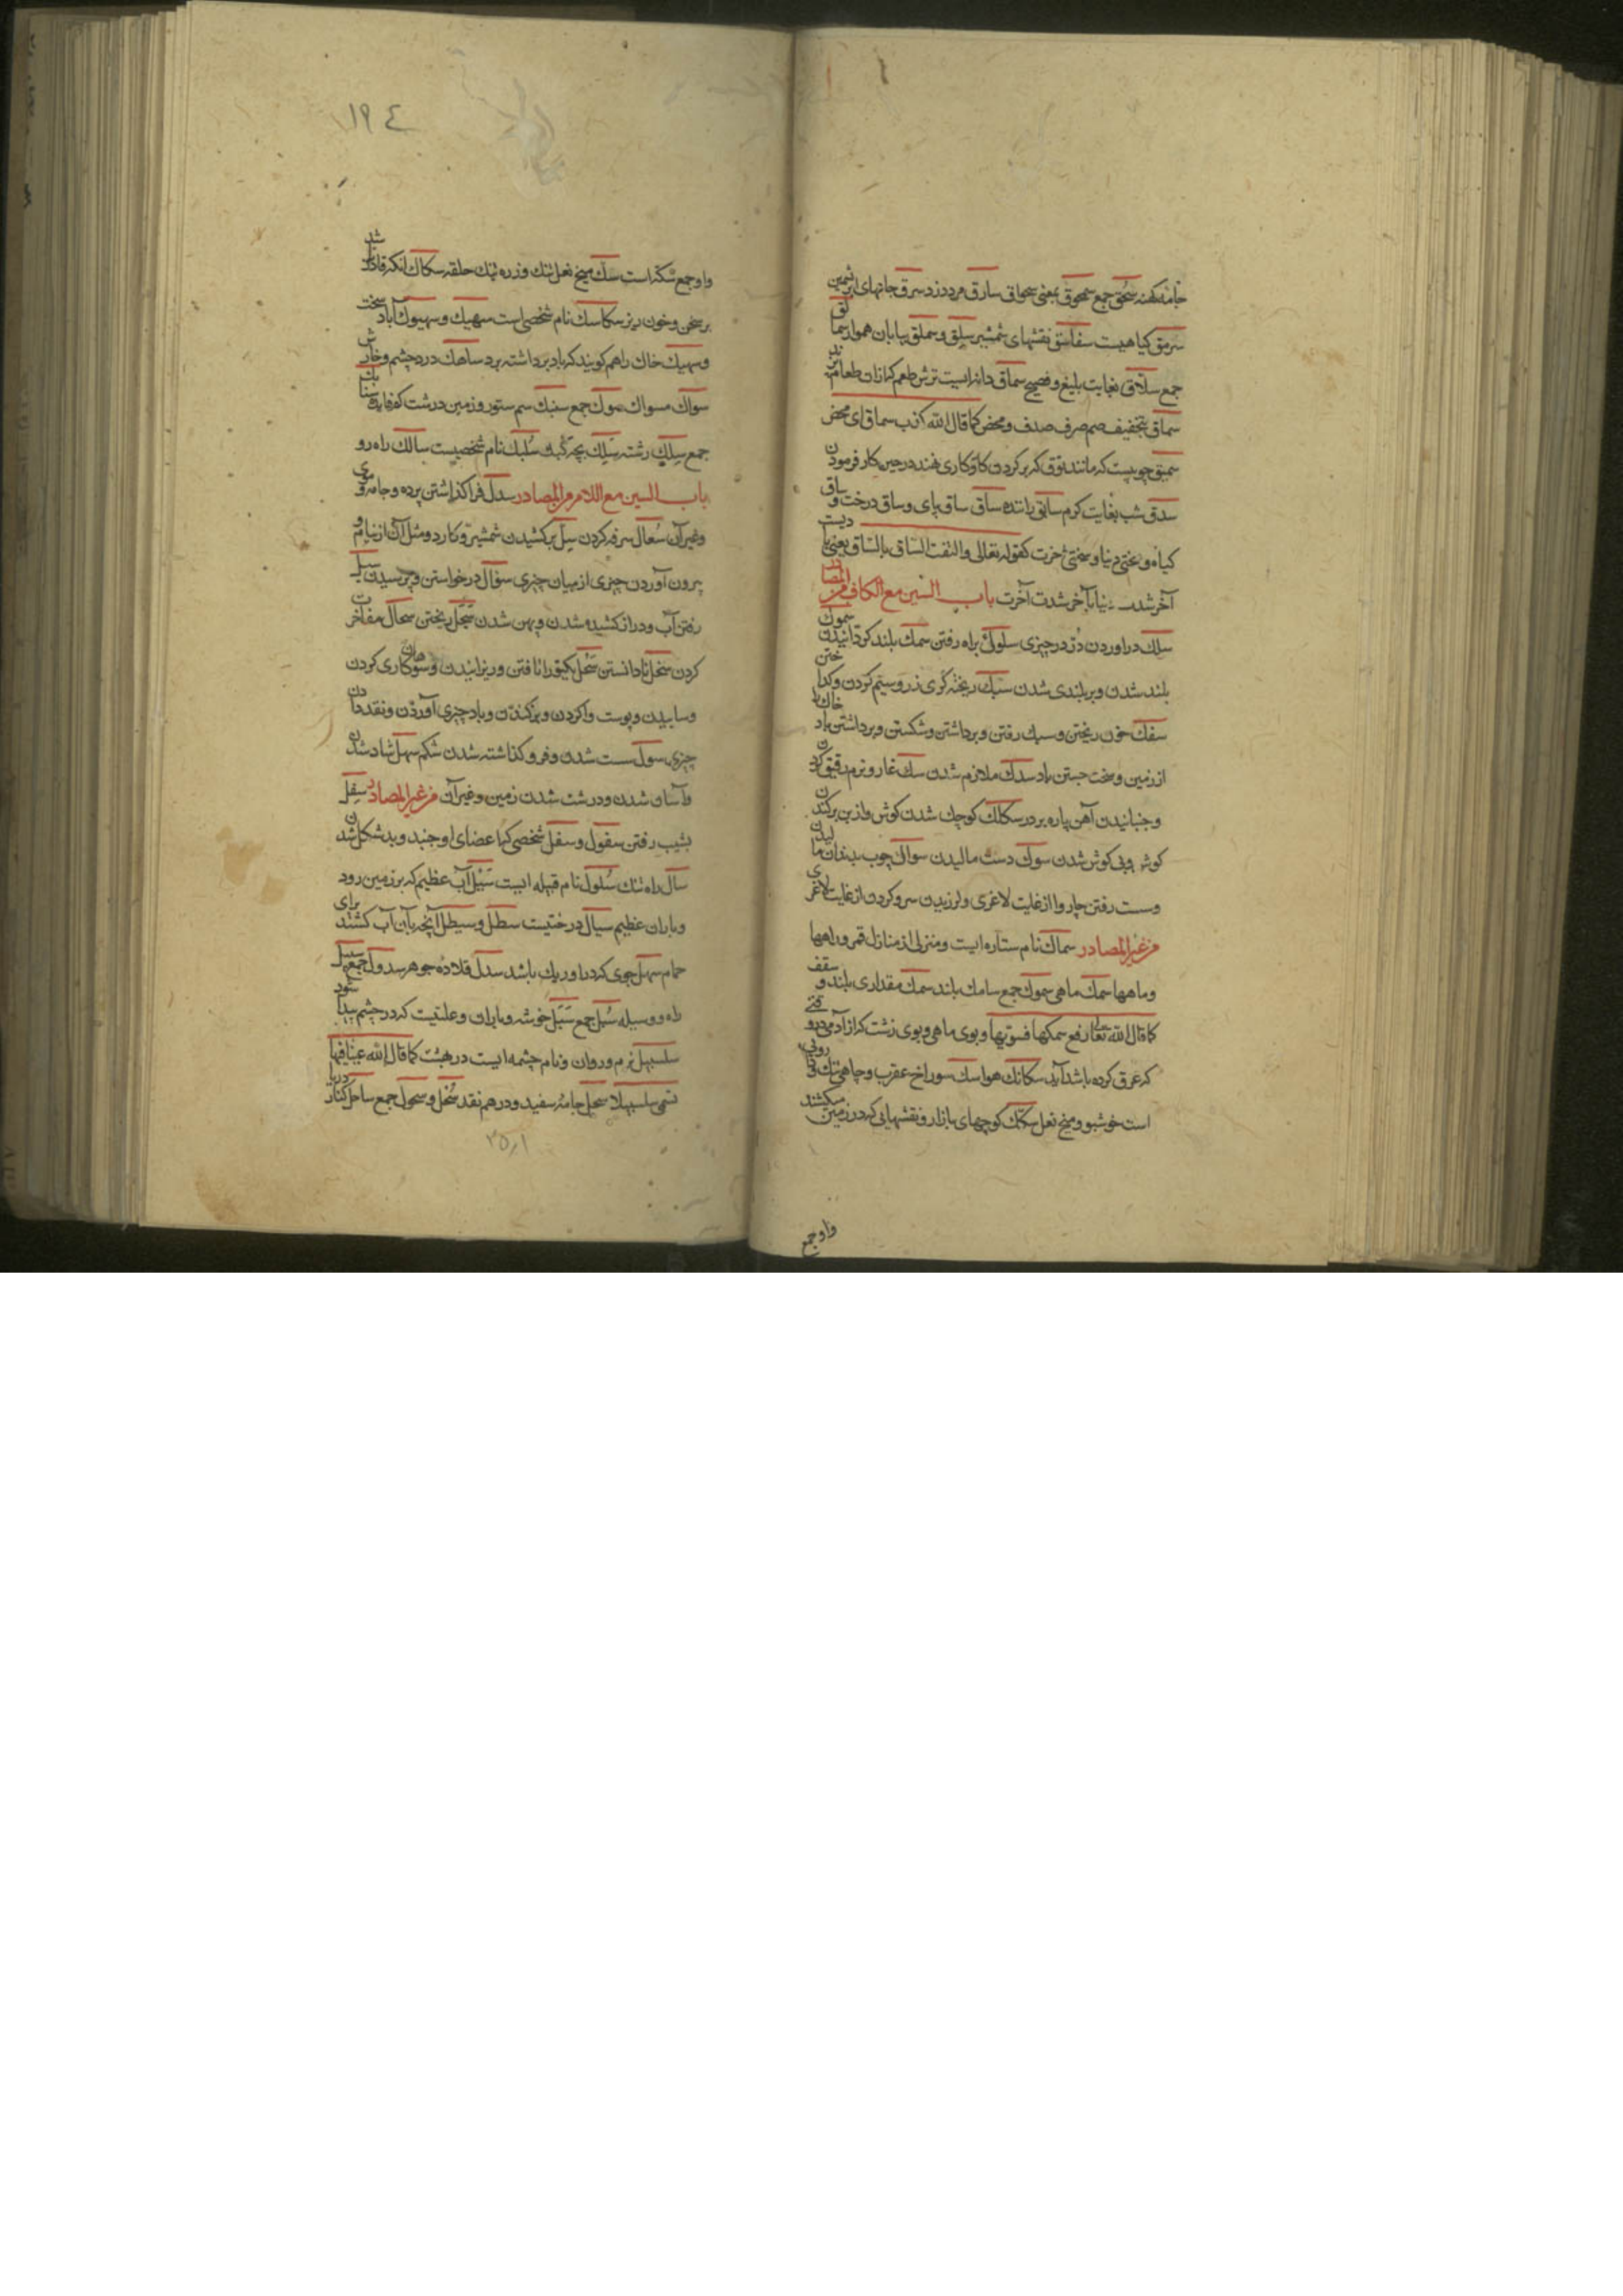 جامهٔ کهنه سُحُق جمع سحوق بمعنی سحاق سارق مرد دزد سرق جامهای ابریشمین
سرمق کیاهیست سفاسق نقشهای شمشیر سلق و سملق بیابان هموار سمالق
جمع سلّاق بغایت بلیغ و فصیح سماق دانه ایست ترش طعم که ازان طعام پزند
سماق بتخفیف میم صرف صدف و محض کما قال الله کذب سماق ای محض
سمیق چوبیست که مانند طوق که بر کردن کاو کاری نهند در حین کار فرمودن
سدق شب بغایت کرم سائق راننده ساق ساق پای و ساق درخت و ساق
کیاه و سختی دنیا و سختی آخرت کقوله تعالی والتفت الساق بالساق یعنی
آخر شدت دنیا بآخر شدت آخرت باب السین مع الکاف من المصادر
سلک دراوردن دُرّ در چیزی سلوک براه رفتن سمک بلند کردانیدن سموک
بلند شدن و بر بلندی شدن سبک ریخته کری زر و سیم کردن و کداختن
سفک خون ریختن و سبک رفتن و برداشتن و شکستن و برداشتن باد خاک را
از زمین و سخت جستن باد سدک ملازم شدن سک غار و نرم رقیق کردن
و جنبانیدن آهن پاره بر در سکاک کوچک شدن کوش و از بن برکندن
کوش و بی کوش شدن سوک دست مالیدن سواک چوب بدندان مالیدن
و سست رفتن چاروا از غایت لاغری و لرزیدن سر و کردن از غایت لاغری
من غیر المصادر سماک نام ستاره ایست و منزلی از منازل قمر و راهها
و ماهها سمک ماهی سموک جمع سامک بلند سمک مقداری بلند و سقف
کما قال الله تعالی رفع سمکها فسوّیها و بوی ماهی و بوی زشت که از آدمی در وقتی
که عرق کرده باشد آید سکانک هوا سک سوراخ عقرب و چاهی تنک و
است خوشبو و میخ نعل سکک کوچهای بازار و نقشهایی که در زمین میکشند
واو جمع
١٩٤
واو جمع سکّه است سک میخ نعل تنک و زره تنک حلقه سکاک انکه قادر باشد
بر سخن و خون ریز سکاسک نام شخصی است سهیک و سهوک باد سخت
و سهیک خاک را هم کویند که باد برداشته برد ساهک درد چشم و خارش
سواک مسواک سوک جمع سنبک سم ستور و زمین درشت کم فایده سنابک
جمع سلک رشته سلک بچه کبک سُلَیک نام شخصیست سالک راه رو
باب السین مع اللام من المصادر سدل فرا کذاشتن پرده و جامه و موی
و غیر آن سُعال سرفه کردن سلّ برکشیدن شمشیر و کارد و مثل آن از نیام و
بیرون آوردن چیزی از میان چیزی سؤال درخواستن و پرسیدن سیل
رفتن آب و دراز کشیده شدن و پهن شدن سجل ریختن سجال مفاخرت
کردن سحل تا دانستن سحل یکتو رانا فتن و ریزانیدن و سوهان کاری کردن
و ساییدن و پوست وا کردن و برکندن و باد چیزی آوردن و نقد دادن
چیزی سول سست شدن و فرو کذاشته شدن شکم سهل شاد شدن
و آسان شدن و درشت شدن زمین و غیر آن من غیر المصادر سفل
بشیب رفتن سغول و سغل شخصی که اعضای او جنبد و بد شکل شدن
سال راه تنک سلول نام قبیله ایست سیل آب عظیم که بر زمین رود
و باران عظیم سیال درختیست سطل و سیطل آنچه بآن آب کشند برای
حمام سهل جوی که درو ریک باشد سدل قلادهٔ جوهر سدول جمع سبیل
راه و وسیله سُبل جمع سَبَل خوشه و باران و علتیست که در چشم پیدا شود
سلسبیل نرم و روان و نام چشمه ایست در بهشت کما قال الله عینا فیها
تسمی سلسبیلا سحل جامهٔ سفید و درهم نقد سُحُل و سحول جمع ساحل کنار دریا